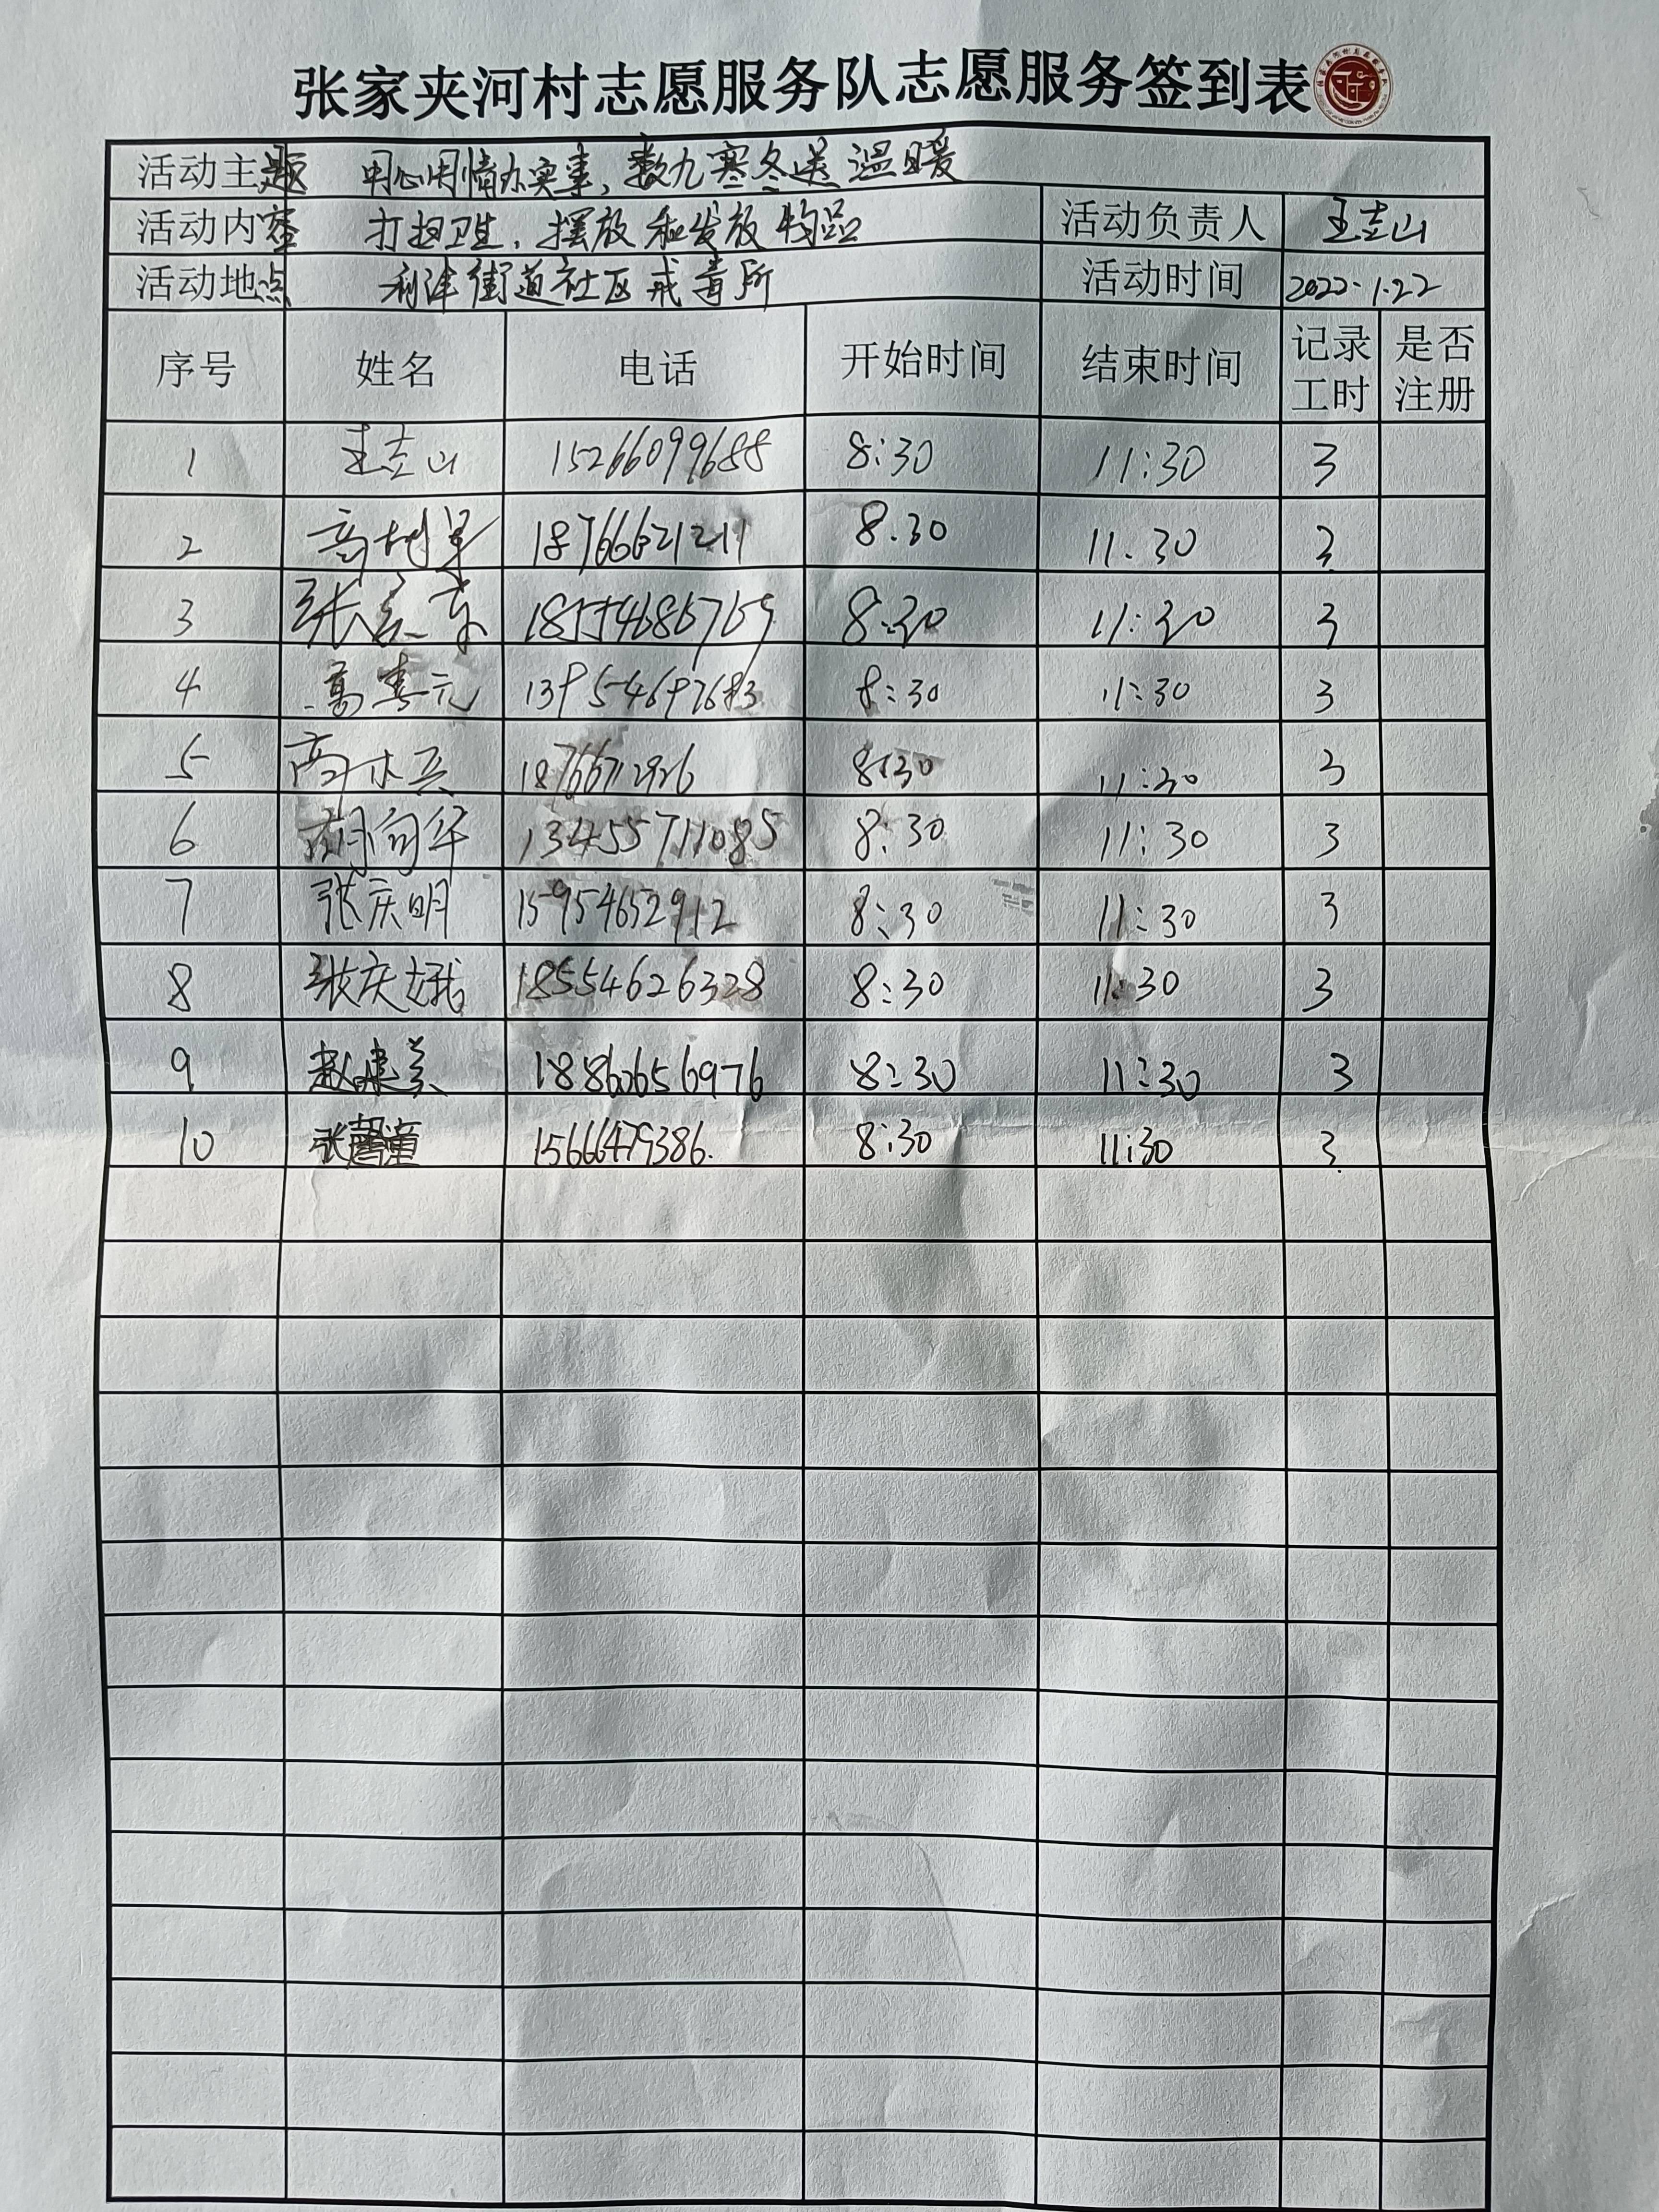 张家夹河村志愿服务队志愿服务签到表
活动主题 用心用情办实事,数九寒冬送温暖
活动内容 打扫卫生,摆放和发放物品 活动负责人 王志山
活动地点 利津街道社区戒毒所 活动时间 2022.1.22
序号 姓名 电话 开始时间 结束时间 记录工时 是否注册
1 王志山 15266099688 8:30 11:30 3
2 18766621211 8.30 11.30 3
3 张 8:30 11:30 3
4 元 8:30 11:30 3
5 8:30 11:30 3
6 向华 13455711085 8:30 11:30 3
7 张庆明 15954652912 8:30 11:30 3
8 张庆娥 18554626328 8:30 11:30 3
9 赵建美 18860656976 8:30 11:30 3
10 张馨潼 15666479386. 8:30 11:30 3